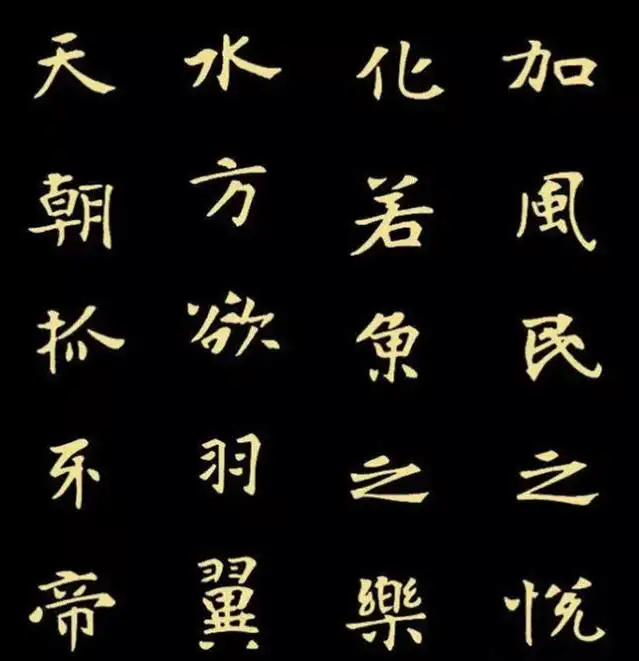 加風民之悦
化若魚之樂
水方欲羽翼
天朝抓牙帝